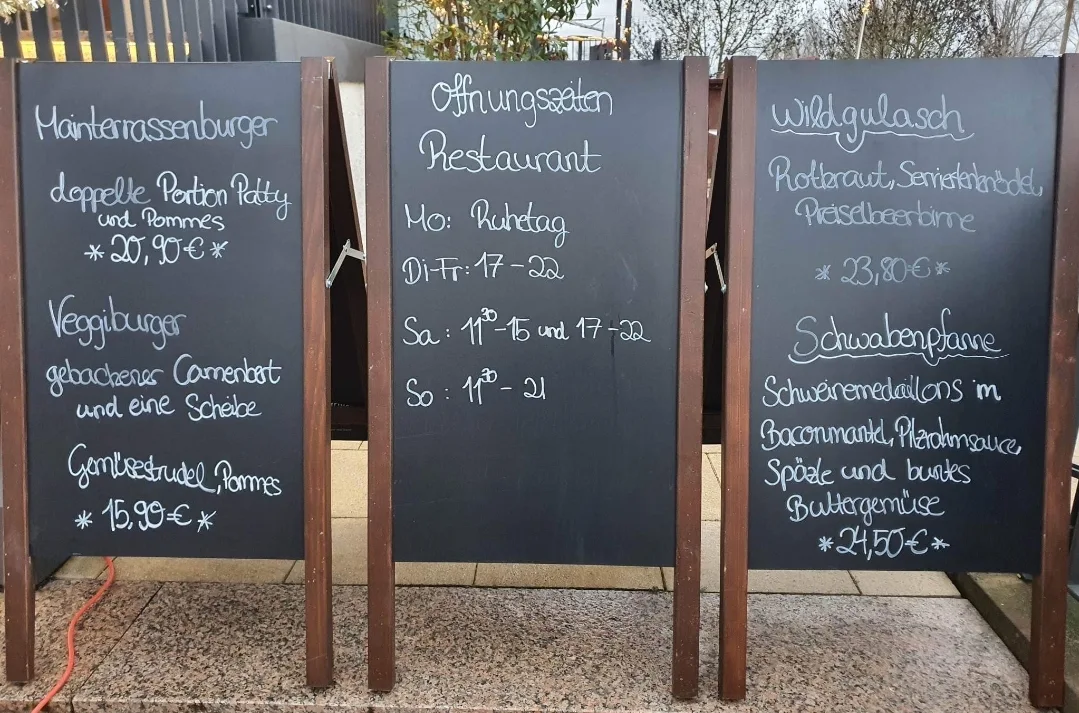 Mainterrassenburger
doppelte Portion Patty
und Pommes
* 20,90 € *
Veggiburger
gebackener Camenbert
und eine Scheibe
Gemüsestrudel, Pommes
* 15,90 € *
Öffnungszeiten
Restaurant
Mo: Ruhetag
Di-Fr: 17 - 22
Sa: 11³⁰ - 15 und 17 - 22
So: 11³⁰ - 21
Wildgulasch
Rotkraut, Serviettenknödel,
Preiselbeerbirne
* 23,80 € *
Schwabenpfanne
Schweinemedaillons im
Baconmantel, Pilzrahmsauce,
Spätzle und buntes
Buttergemüse
* 24,50 € *